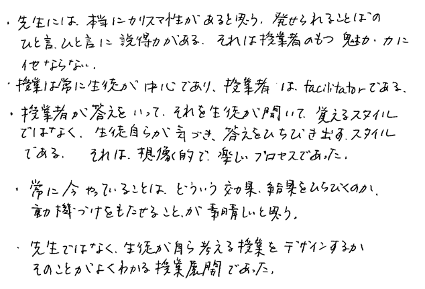 ・先生には、本当にカリスマ性があると思う。発せられることばの
ひと言ひと言に説得力がある。それは授業者のもつ魅力・力に
他ならない。
・授業は常に生徒が中心であり、授業者は、facilitatorである。
・授業者が答えをいって、それを生徒が聞いて、覚えるスタイル
ではなく、生徒自らが気づき、答えをひちびき出すスタイル
である。それは、想像的で、楽しいプロセスであった。
・常に今やっていることは、どういう効果、結果をひちびくのか、
動機づけをもたせることが素晴しいと思う。
・先生ではなく、生徒が自ら考える授業をデザインするか
そのことがよくわかる授業展開であった。